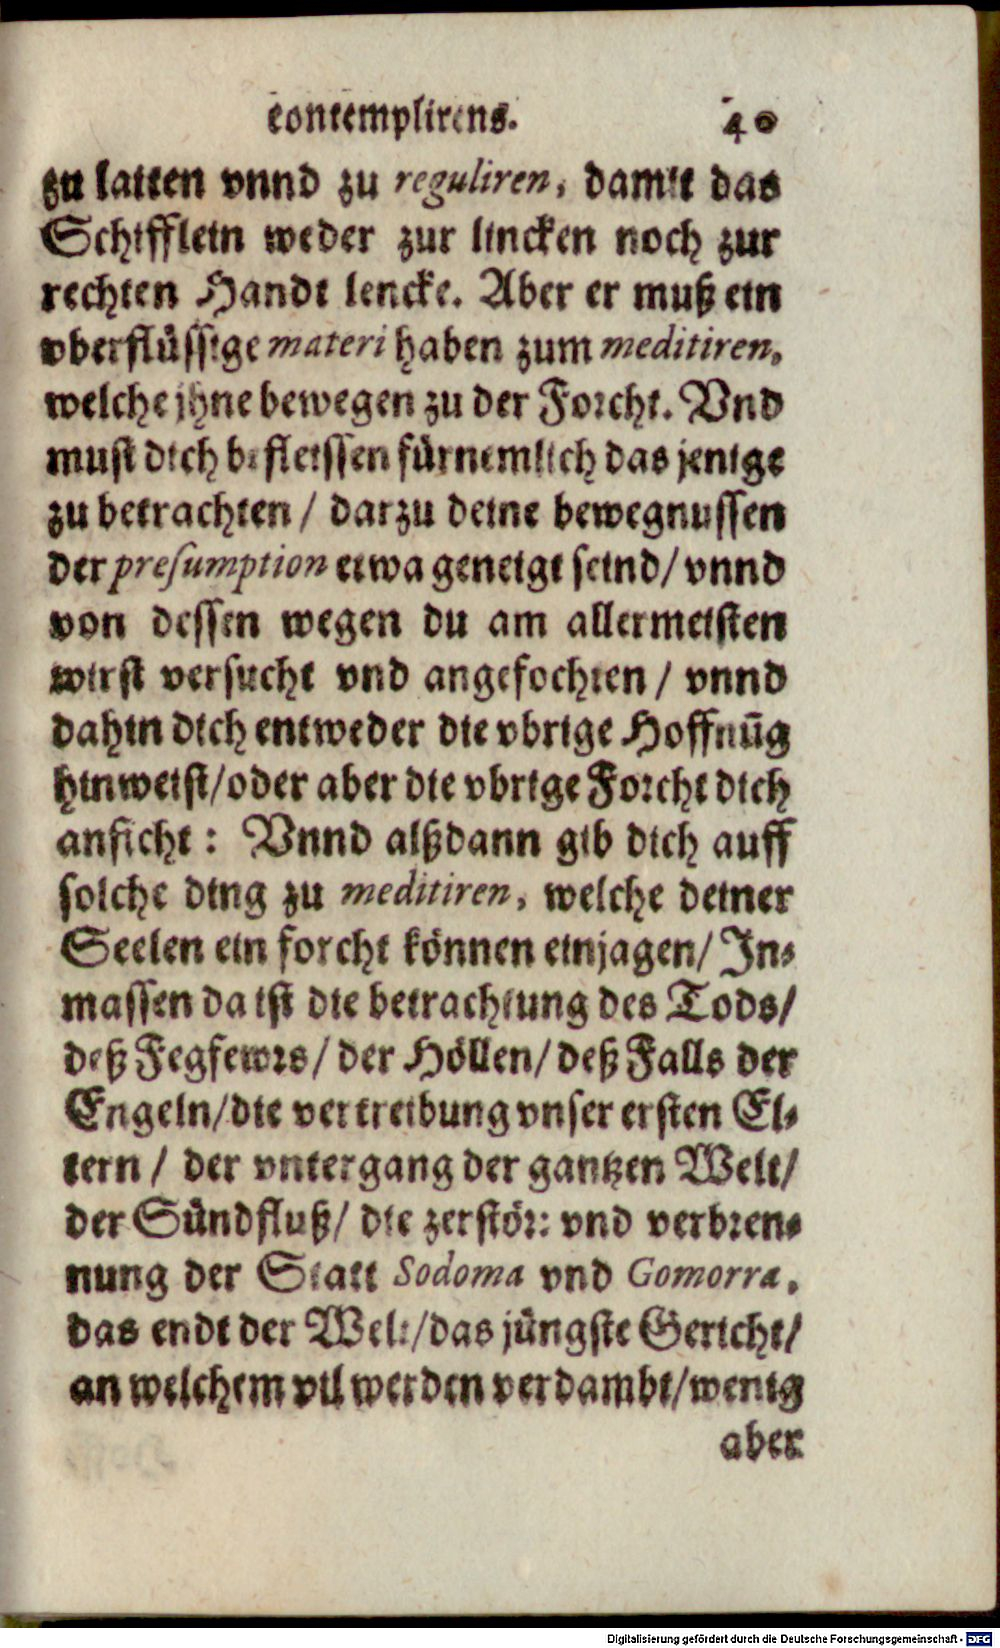 contemplirens. 40
zu laiten vnnd zu reguliren, damit das
Schifflein weder zur lincken noch zur
rechten Handt lencke. Aber er muß ein
vberflüssige materi haben zum meditiren,
welche jhne bewegen zu der Forcht. Vnd
must dich befleissen fürnemlich das jenige
zu betrachten / darzu deine bewegnussen
der presumption etwa geneigt seind/ vnnd
von dessen wegen du am allermeisten
wirst versucht vnd angefochten / vnnd
dahin dich entweder die vbrige Hoffnūg
hinweist/oder aber die vbrige Forcht dich
anficht : Vnnd alßdann gib dich auff
solche ding zu meditiren, welche deiner
Seelen ein forcht können einjagen/ In-
massen da ist die betrachtung des Tods/
deß Fegfewrs/ der Höllen/ deß Falls der
Engeln/die vertreibung vnser ersten El-
tern / der vntergang der gantzen Welt/
der Sündfluß/ die zerstör: vnd verbren-
nung der Statt Sodoma vnd Gomorra,
das endt der Welt/das jüngste Gericht/
an welchem vil werden verdambt/wenig
aber
Digitalisierung gefördert durch die Deutsche Forschungsgemeinschaft - DFG